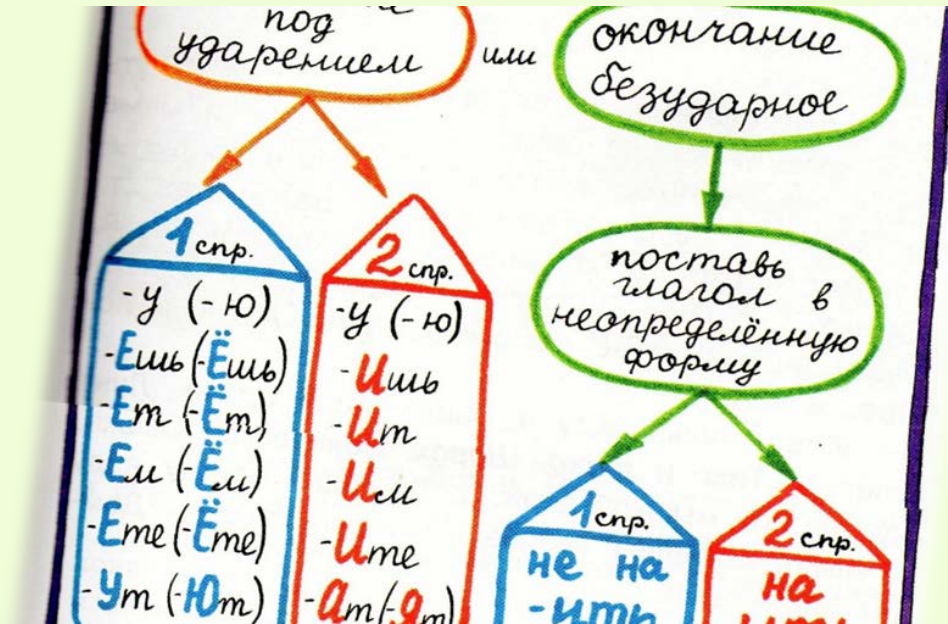 под
ударением
или
окончание
безударное
1 спр.
-у (-ю)
-Ешь (-Ёшь)
-Ет (-Ёт)
-Ем (-Ём)
-Ете (-Ёте)
-Ут (-Ют)
2 спр.
-у (-ю)
-Ишь
-Ит
-Им
-Ите
-Ат (-Ят)
поставь
глагол в
неопределённую
форму
1 спр.
не на
-ить
2 спр.
на